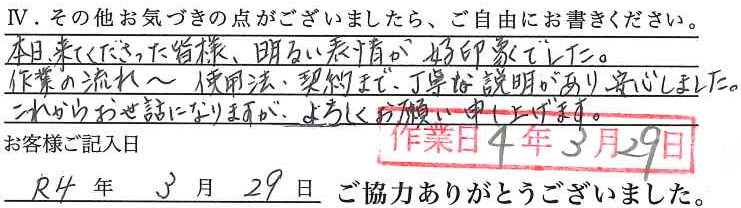 Ⅳ．その他お気づきの点がございましたら、ご自由にお書きください。
本日、来てくださった皆様、明るい表情が 好印象でした。
作業の流れ〜 使用法、契約まで、丁寧な説明があり安心しました。
これからお世話になりますが、よろしくお願い申し上げます。
お客様ご記入日
作業日 4 年 3 月 29 日
R4 年 3 月 29 日 ご協力ありがとうございました。